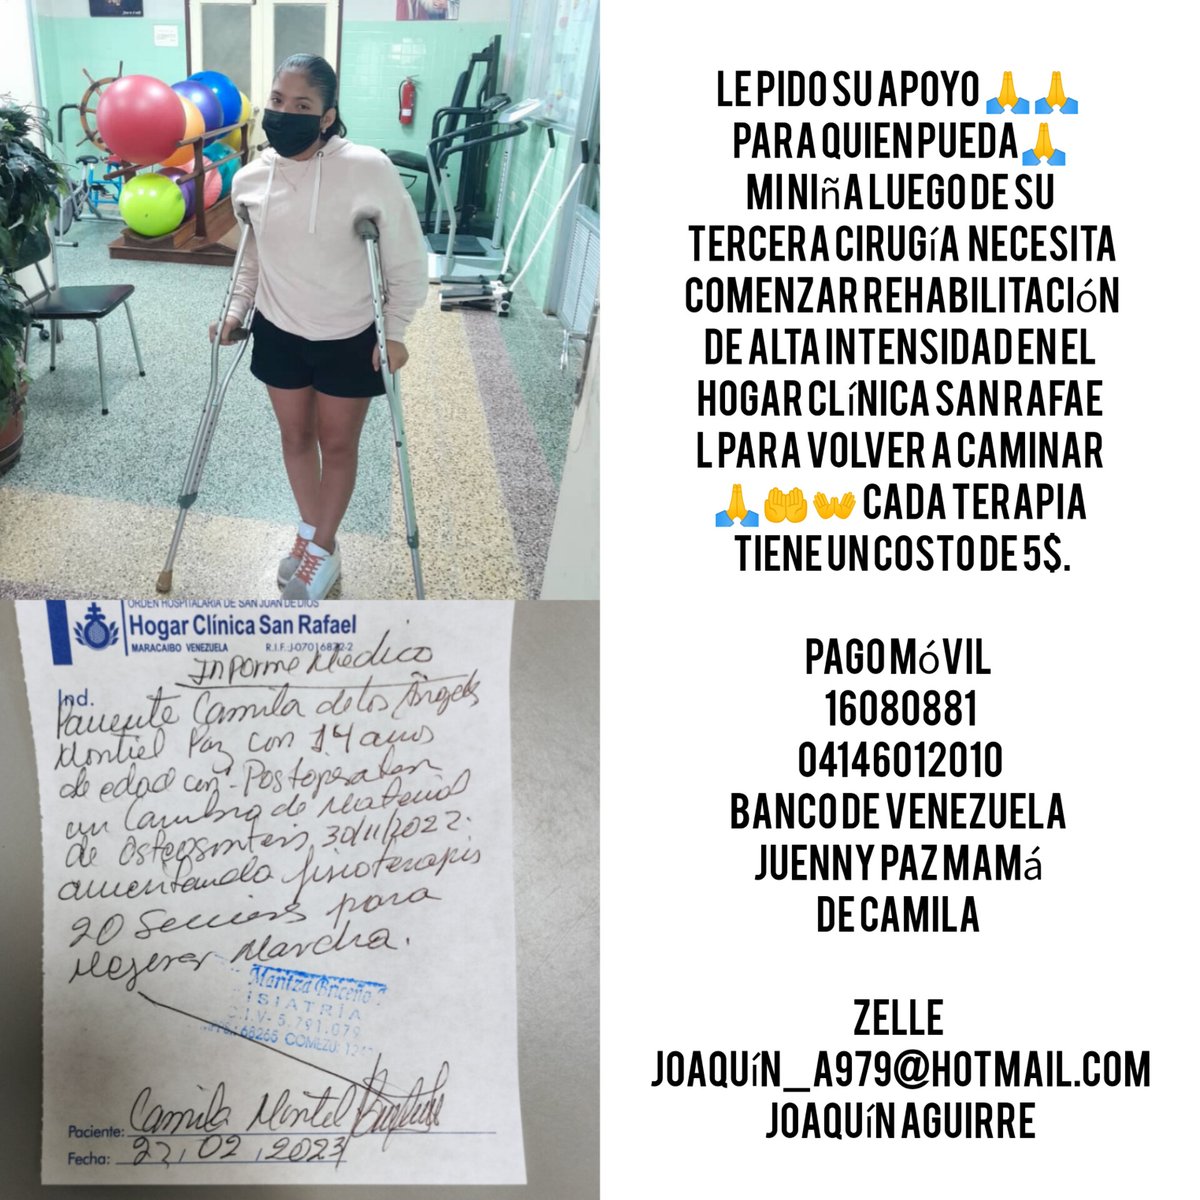 LE PIDO SU APOYO 🙏 🙏
PARA QUIEN PUEDA🙏
MI NIÑA LUEGO DE SU
TERCERA CIRUGÍA NECESITA
COMENZAR REHABILITACIÓN
DE ALTA INTENSIDAD EN EL
HOGAR CLÍNICA SAN RAFAE
L PARA VOLVER A CAMINAR
🙏🤲👐 CADA TERAPIA
TIENE UN COSTO DE 5$.
PAGO MÓVIL
16080881
04146012010
BANCO DE VENEZUELA
JUENNY PAZ MAMÁ
DE CAMILA
ZELLE
JOAQUÍN_A979@HOTMAIL.COM
JOAQUÍN AGUIRRE
ORDEN HOSPITALARIA DE SAN JUAN DE DIOS
Hogar Clínica San Rafael
MARACAIBO VENEZUELA R.I.F.:J-07016872-2
Informe Medico
Ind.
Paciente Camila de los Ángeles
Montiel Paz con 14 años
de edad con Postoperatorio
un Cambio de Material
de Osteosintesis 30/11/2022.
ameritando fisioterapia
20 Seciones para
Mejorar Marcha.
Maritza Briceño
FISIATRÍA
C.I.V- 5.791.079
68265 COMEZU:
Paciente: Camila Montiel
Fecha: 27,02,2023